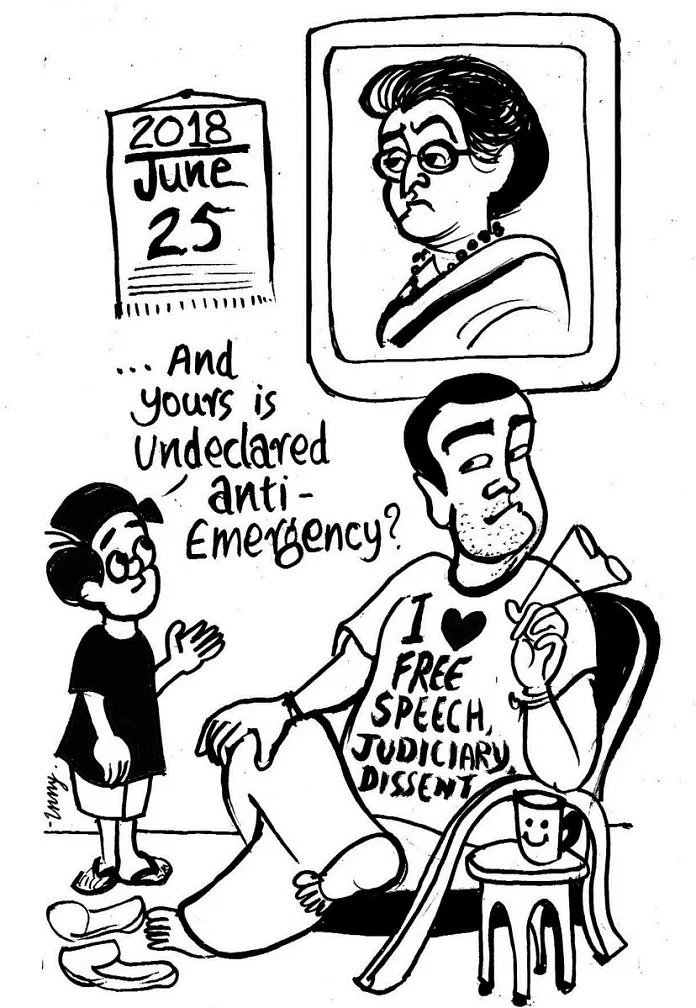 2018
June
25
... And
yours is
undeclared
anti-
Emergency?
I ♥
FREE
SPEECH,
JUDICIARY,
DISSENT.
-unny.